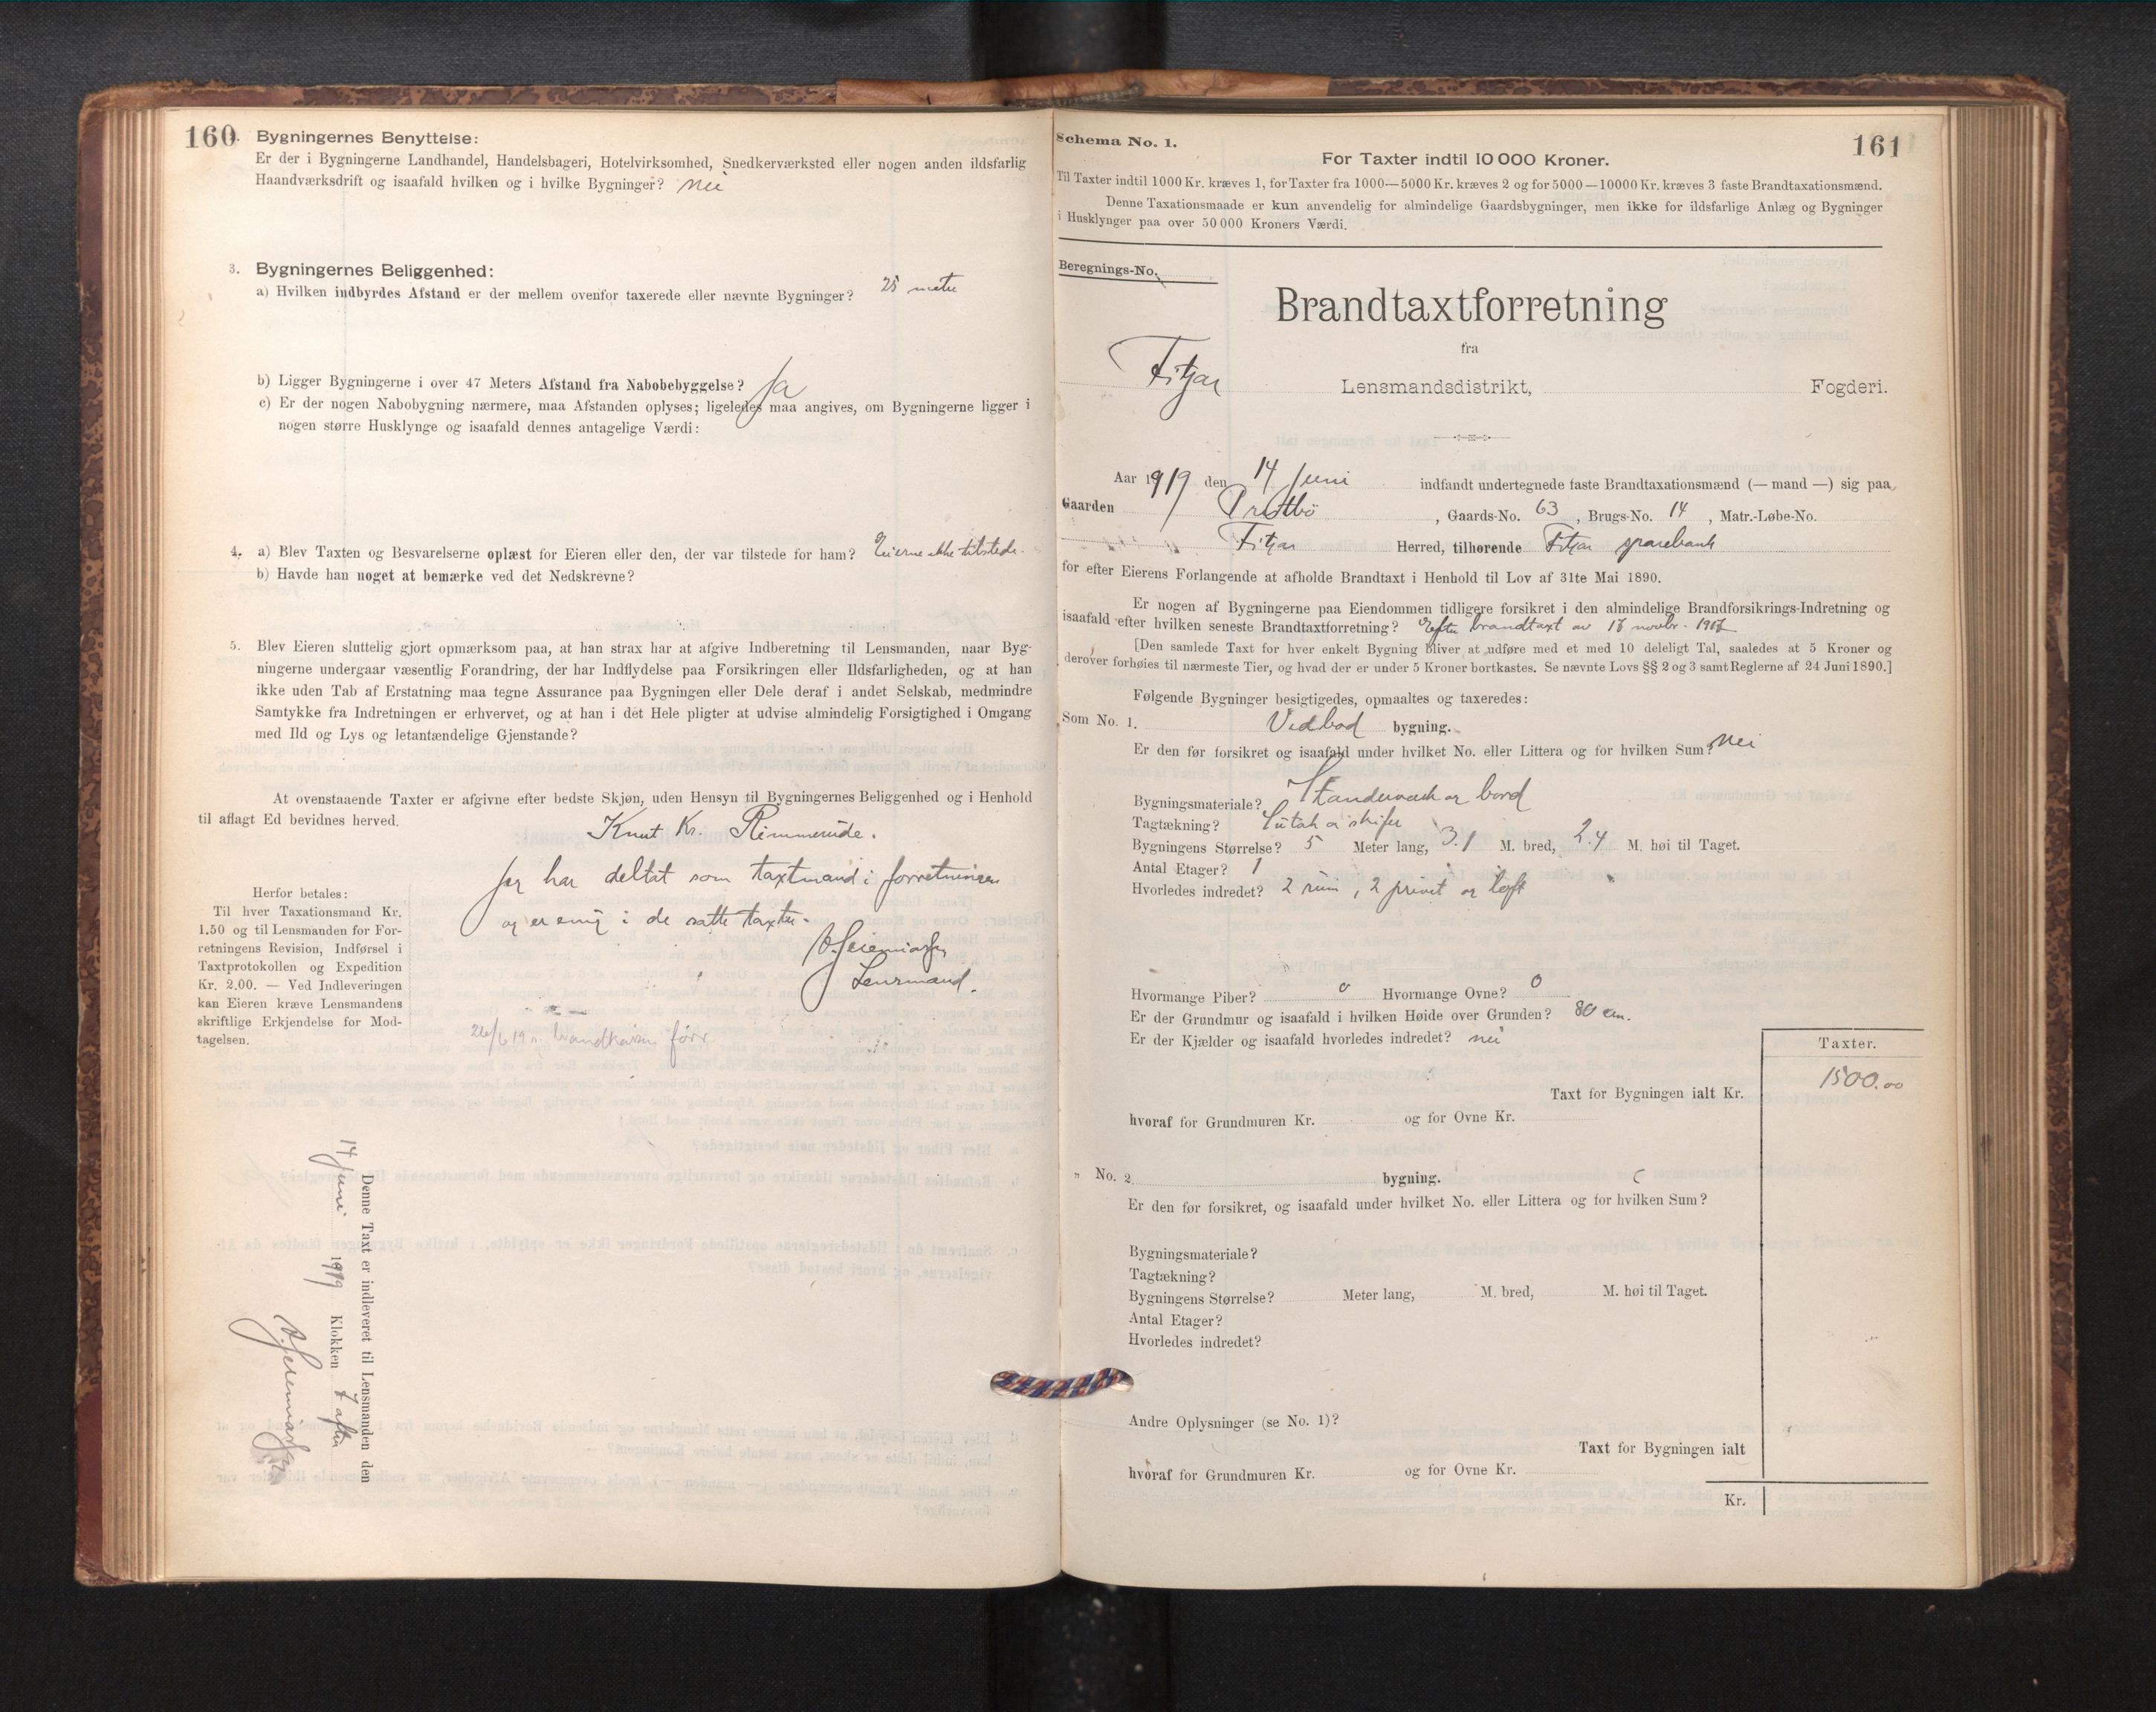 160.
Bygningernes Benyttelse:
Er der i Bygningerne Landhandel, Handelsbageri, Hotelvirksomhed, Snedkerværksted eller nogen anden ildsfarlig
Haandværksdrift og isaafald hvilken og i hvilke Bygninger? nei
3. Bygningernes Beliggenhed:
a) Hvilken indbyrdes Afstand er der mellem ovenfor taxerede eller nævnte Bygninger? 25 meter
b) Ligger Bygningerne i over 47 Meters Afstand fra Nabobebyggelse? Ja
c) Er der nogen Nabobygning nærmere, maa Afstanden oplyses; ligeledes maa angives, om Bygningerne ligger i
nogen større Husklynge og isaafald dennes antagelige Værdi:
4. a) Blev Taxten og Besvarelserne oplæst for Eieren eller den, der var tilstede for ham? Eierne ikke tilstede.
b) Havde han noget at bemærke ved det Nedskrevne?
5. Blev Eieren sluttelig gjort opmærksom paa, at han strax har at afgive Indberetning til Lensmanden, naar Byg-
ningerne undergaar væsentlig Forandring, der har Indflydelse paa Forsikringen eller Ildsfarligheden, og at han
ikke uden Tab af Erstatning maa tegne Assurance paa Bygningen eller Dele deraf i andet Selskab, medmindre
Samtykke fra Indretningen er erhvervet, og at han i det Hele pligter at udvise almindelig Forsigtighed i Omgang
med Ild og Lys og letantændelige Gjenstande?
At ovenstaaende Taxter er afgivne efter bedste Skjøn, uden Hensyn til Bygningernes Beliggenhed og i Henhold
til aflagt Ed bevidnes herved.
Knut Kr. Rimmereide.
Jeg har deltat som taxtmand i forretningen
og er enig i de satte taxter.
Lensmand.
Herfor betales:
Til hver Taxationsmand Kr.
1.50 og til Lensmanden for For-
retningens Revision, Indførsel i
Taxtprotokollen og Expedition
Kr. 2.00. — Ved Indleveringen
kan Eieren kræve Lensmandens
skriftlige Erkjendelse for Mod-
tagelsen.
26/6 19
Denne Taxt er indleveret til Lensmanden den
14 Juni 1919 Klokken 7 aften
161
Schema No. 1.
For Taxter indtil 10 000 Kroner.
Til Taxter indtil 1000 Kr. kræves 1, for Taxter fra 1000—5000 Kr. kræves 2 og for 5000—10000 Kr. kræves 3 faste Brandtaxationsmænd.
Denne Taxationsmaade er kun anvendelig for almindelige Gaardsbygninger, men ikke for ildsfarlige Anlæg og Bygninger
i Husklynger paa over 50 000 Kroners Værdi.
Beregnings-No.
Brandtaxtforretning
fra
Fitjar Lensmandsdistrikt, Fogderi.
Aar 1919 den 14 Juni indfandt undertegnede faste Brandtaxationsmænd (— mand —) sig paa
Gaarden Prestbö, Gaards-No. 63, Brugs-No. 14, Matr.-Løbe-No.
Fitjar Herred, tilhørende Fitjar sparebank
for efter Eierens Forlangende at afholde Brandtaxt i Henhold til Lov af 31te Mai 1890.
Er nogen af Bygningerne paa Eiendommen tidligere forsikret i den almindelige Brandforsikrings-Indretning og
isaafald efter hvilken seneste Brandtaxtforretning? Efter brandtaxt av novbr.
[Den samlede Taxt for hver enkelt Bygning bliver at udføre med et med 10 deleligt Tal, saaledes at 5 Kroner og
derover forhøies til nærmeste Tier, og hvad der er under 5 Kroner bortkastes. Se nævnte Lovs §§ 2 og 3 samt Reglerne af 24 Juni 1890.]
Følgende Bygninger besigtigedes, opmaaltes og taxeredes:
Som No. 1. Vedbod bygning.
Er den før forsikret og isaafald under hvilket No. eller Littera og for hvilken Sum? Nei
Bygningsmateriale? Standerverk og bord
Tagtækning? Sutak og skifer
Bygningens Størrelse? 5 Meter lang, 3.1 M. bred, 2.4 M. høi til Taget.
Antal Etager? 1
Hvorledes indredet? 2 rum, 2 privet og loft
Hvormange Piber? 0 Hvormange Ovne? 0
Er der Grundmur og isaafald i hvilken Høide over Grunden? 80 cm.
Er der Kjælder og isaafald hvorledes indredet? nei
Taxter.
Taxt for Bygningen ialt Kr. 1500.00
hvoraf for Grundmuren Kr. og for Ovne Kr.
" No. 2 bygning.
Er den før forsikret, og isaafald under hvilket No. eller Littera og for hvilken Sum?
Bygningsmateriale?
Tagtækning?
Bygningens Størrelse? Meter lang, M. bred, M. høi til Taget.
Antal Etager?
Hvorledes indredet?
Andre Oplysninger (se No. 1)?
Taxt for Bygningen ialt
hvoraf for Grundmuren Kr. og for Ovne Kr.
Kr.